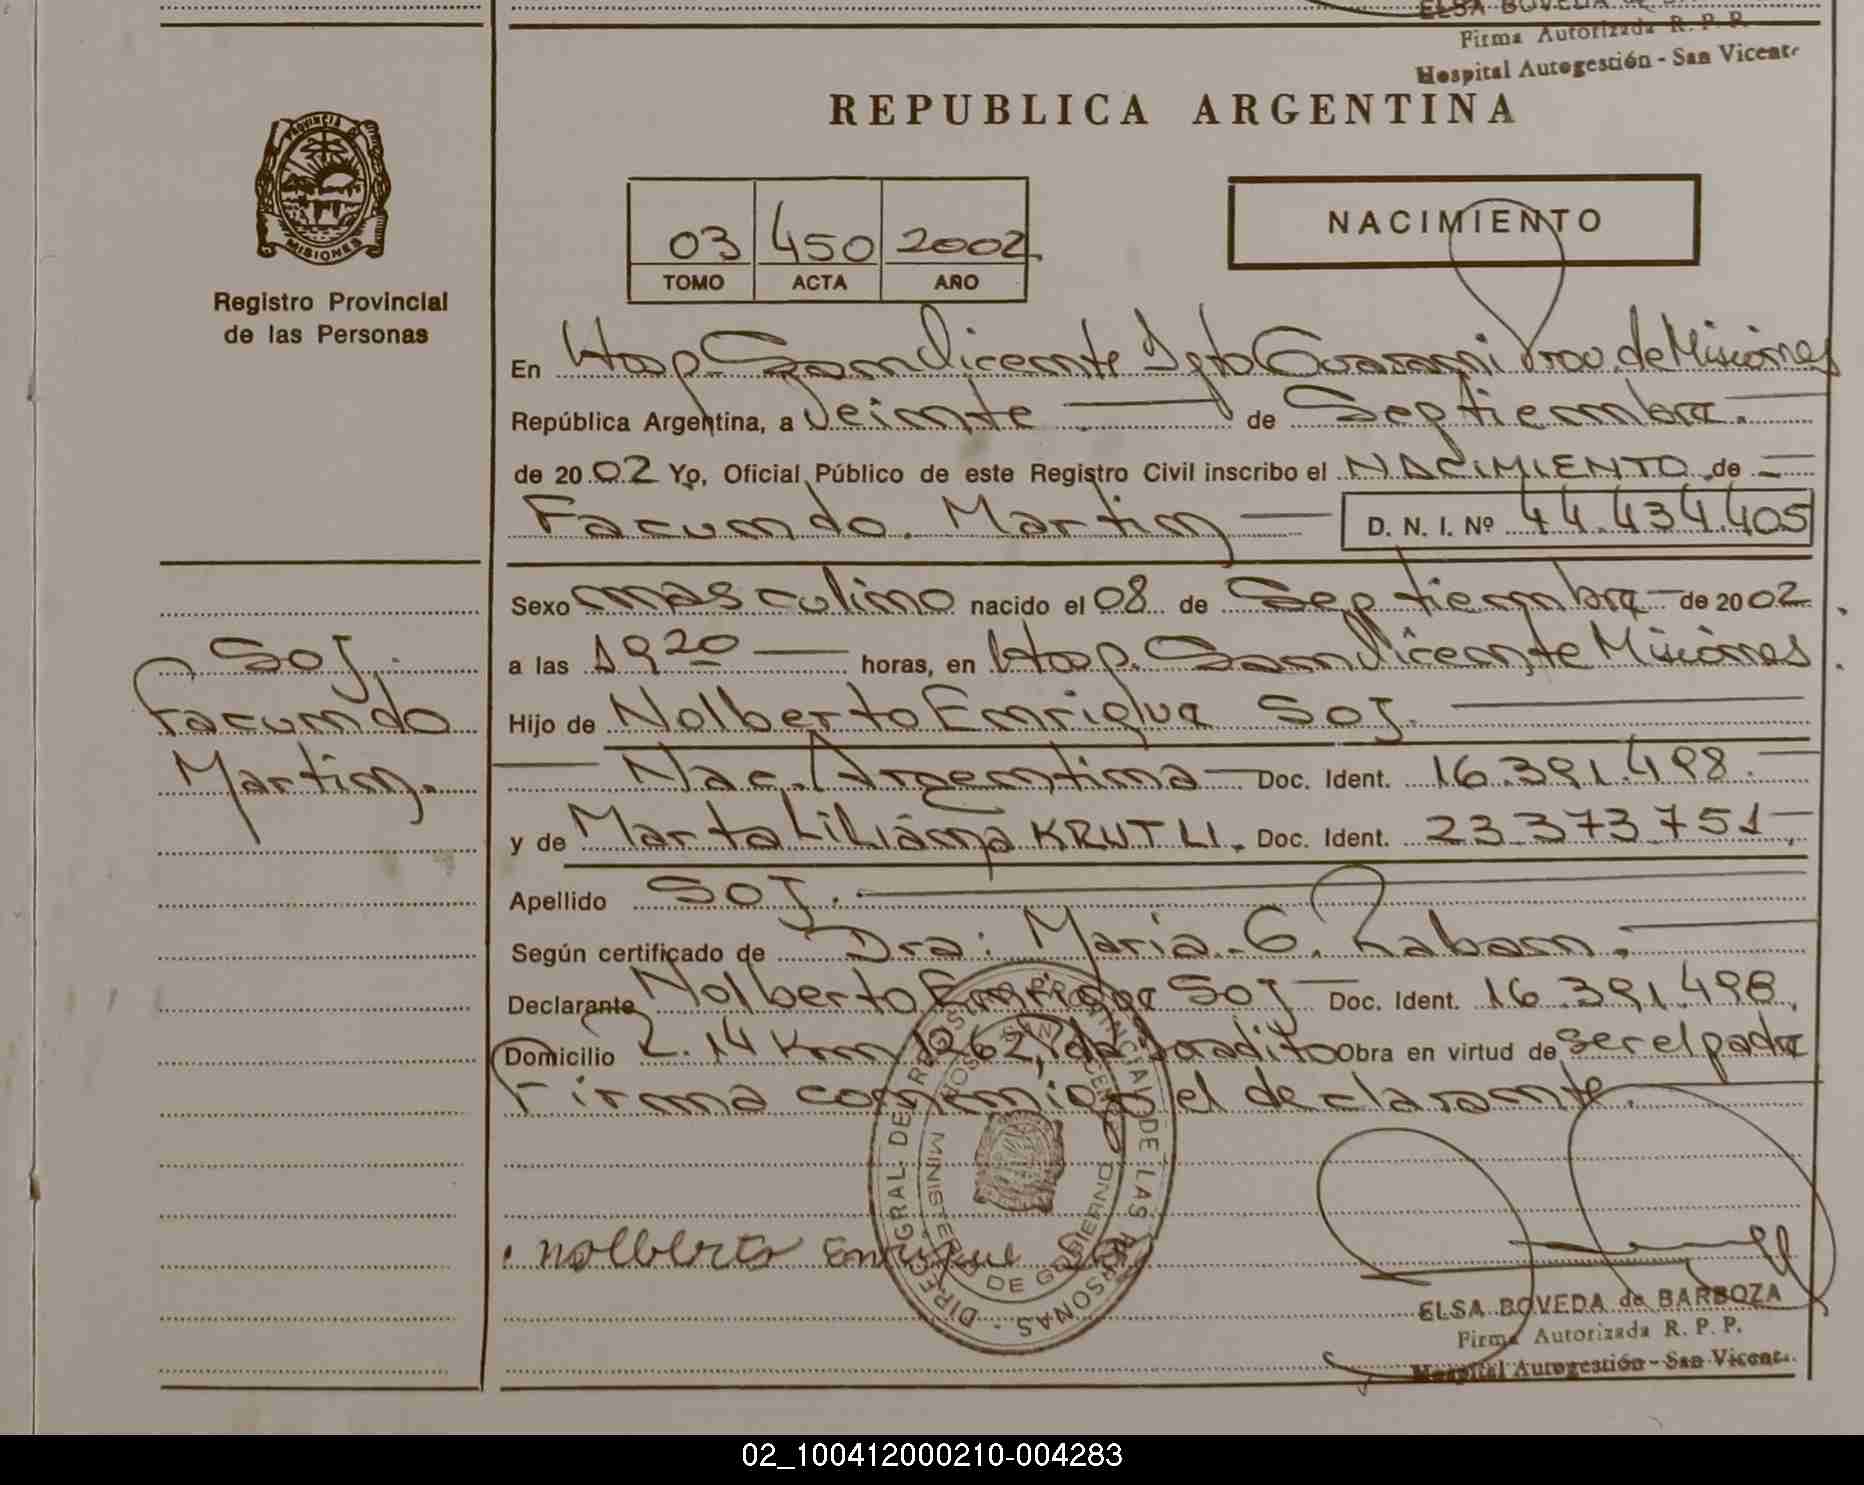 ELSA BOVEDA de
Firma Autorizada R. P. P.
Hospital Autogestión - San Vicente
REPUBLICA ARGENTINA
PROVINCIA DE
MISIONES
Registro Provincial
de las Personas
03 450 2002
TOMO ACTA AÑO
NACIMIENTO
En Hosp San Vicente Dpto Guarani Prov. de Misiones
República Argentina, a Veinte de Septiembre.
de 20 02 Yo, Oficial Público de este Registro Civil inscribo el NACIMIENTO de
Facundo Martin D. N. I. Nº 44.434.405
Sexo masculino nacido el 08 de Septiembre de 20 02
a las 19 20 horas, en Hosp. San Vicente Misiones
Soj.
Facundo
Martin.
Hijo de Nolberto Enrique Soj.
Nac. Argentina Doc. Ident. 16.391.498.
y de Marta Liliana KRUTLI. Doc. Ident. 23.373.751
Apellido Soj.
Según certificado de Dra: Maria G. Rabam.
Declarante Nolberto Enrique Soj Doc. Ident. 16.391.498.
Domicilio R. 14 Km 1262, Obra en virtud de ser el padre
Firma conmigo el declarante.
DIREC. GRAL DEL REGISTRO PROVINCIAL DE LAS PERSONAS
HOSP. SAN VICENTE
MINISTERIO DE GOBIERNO
Nolberto Enrique Soj
ELSA BOVEDA de BARBOZA
Firma Autorizada R. P. P.
Hospital Autogestión - San Vicent.
02_100412000210-004283